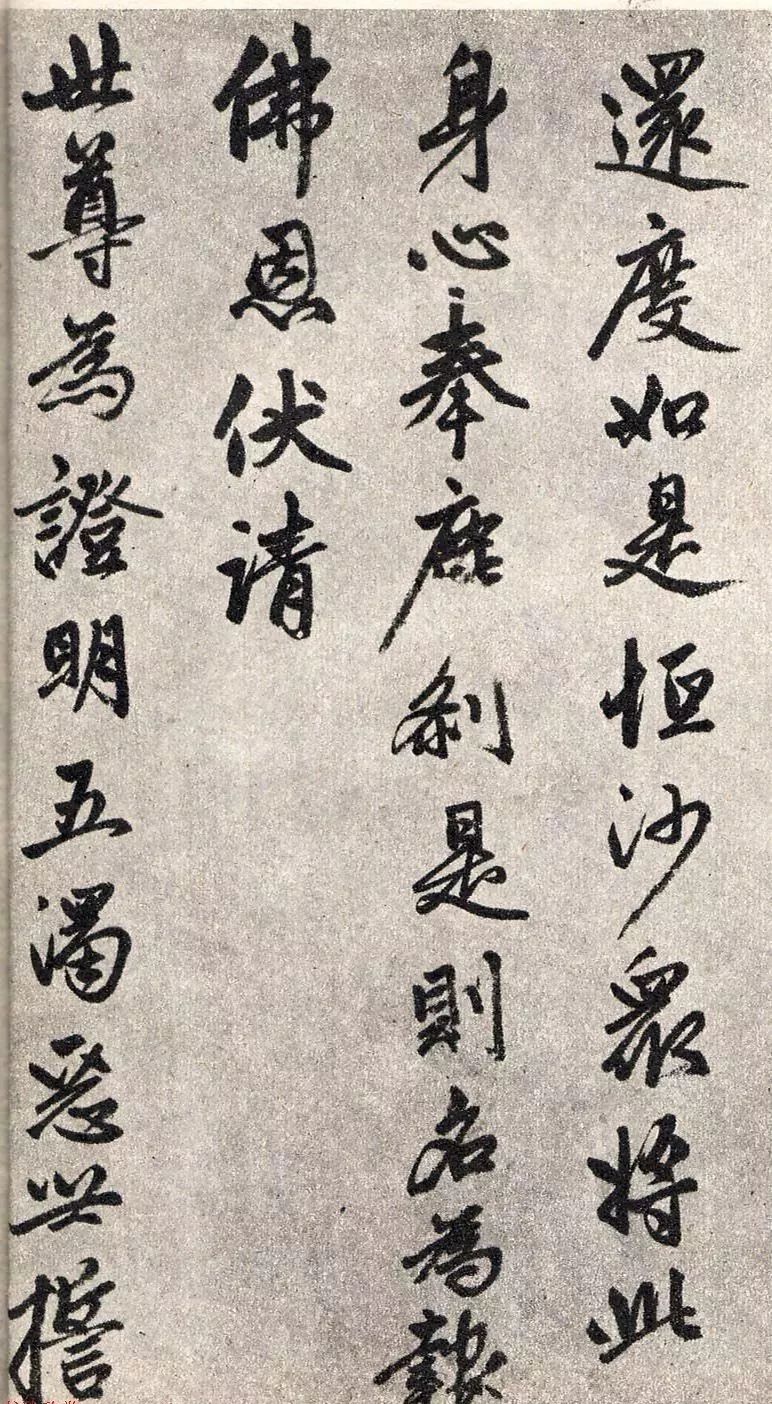 還度如是恒沙眾將此
身心奉塵剎是則名為報
佛恩伏請
世尊為證明五濁惡世誓